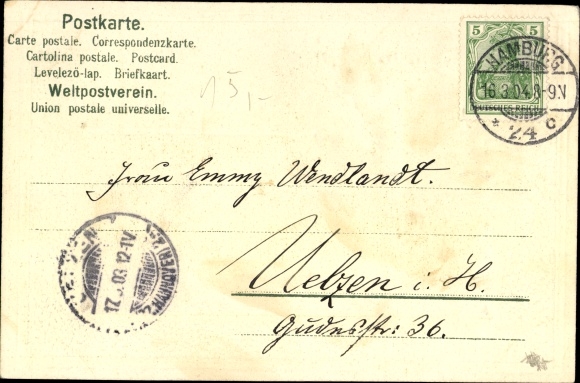 Postkarte.
Carte postale. Correspondenzkarte.
Cartolina postale. Postcard.
Levelező-lap. Briefkaart.
Weltpostverein.
Union postale universelle.
15,-
5 5
DEUTSCHES REICH
HAMBURG
16.3.04.8-9.N
* 24 c
Frau Emmy Wendlandt.
Uelzen i. H.
Gudesstr: 36.
HANNOVER
12-1V.